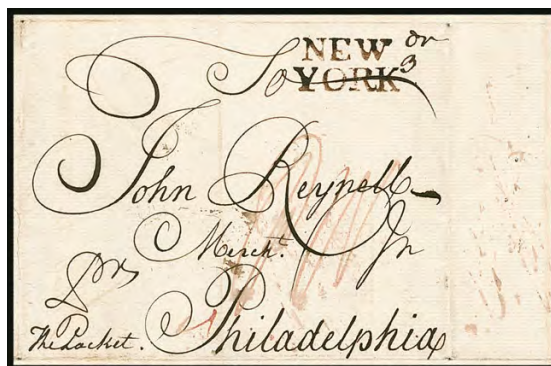 To NEW dr
YORK 3
John Reynell
Mercht. In
Pr
The Packet. Philadelphia